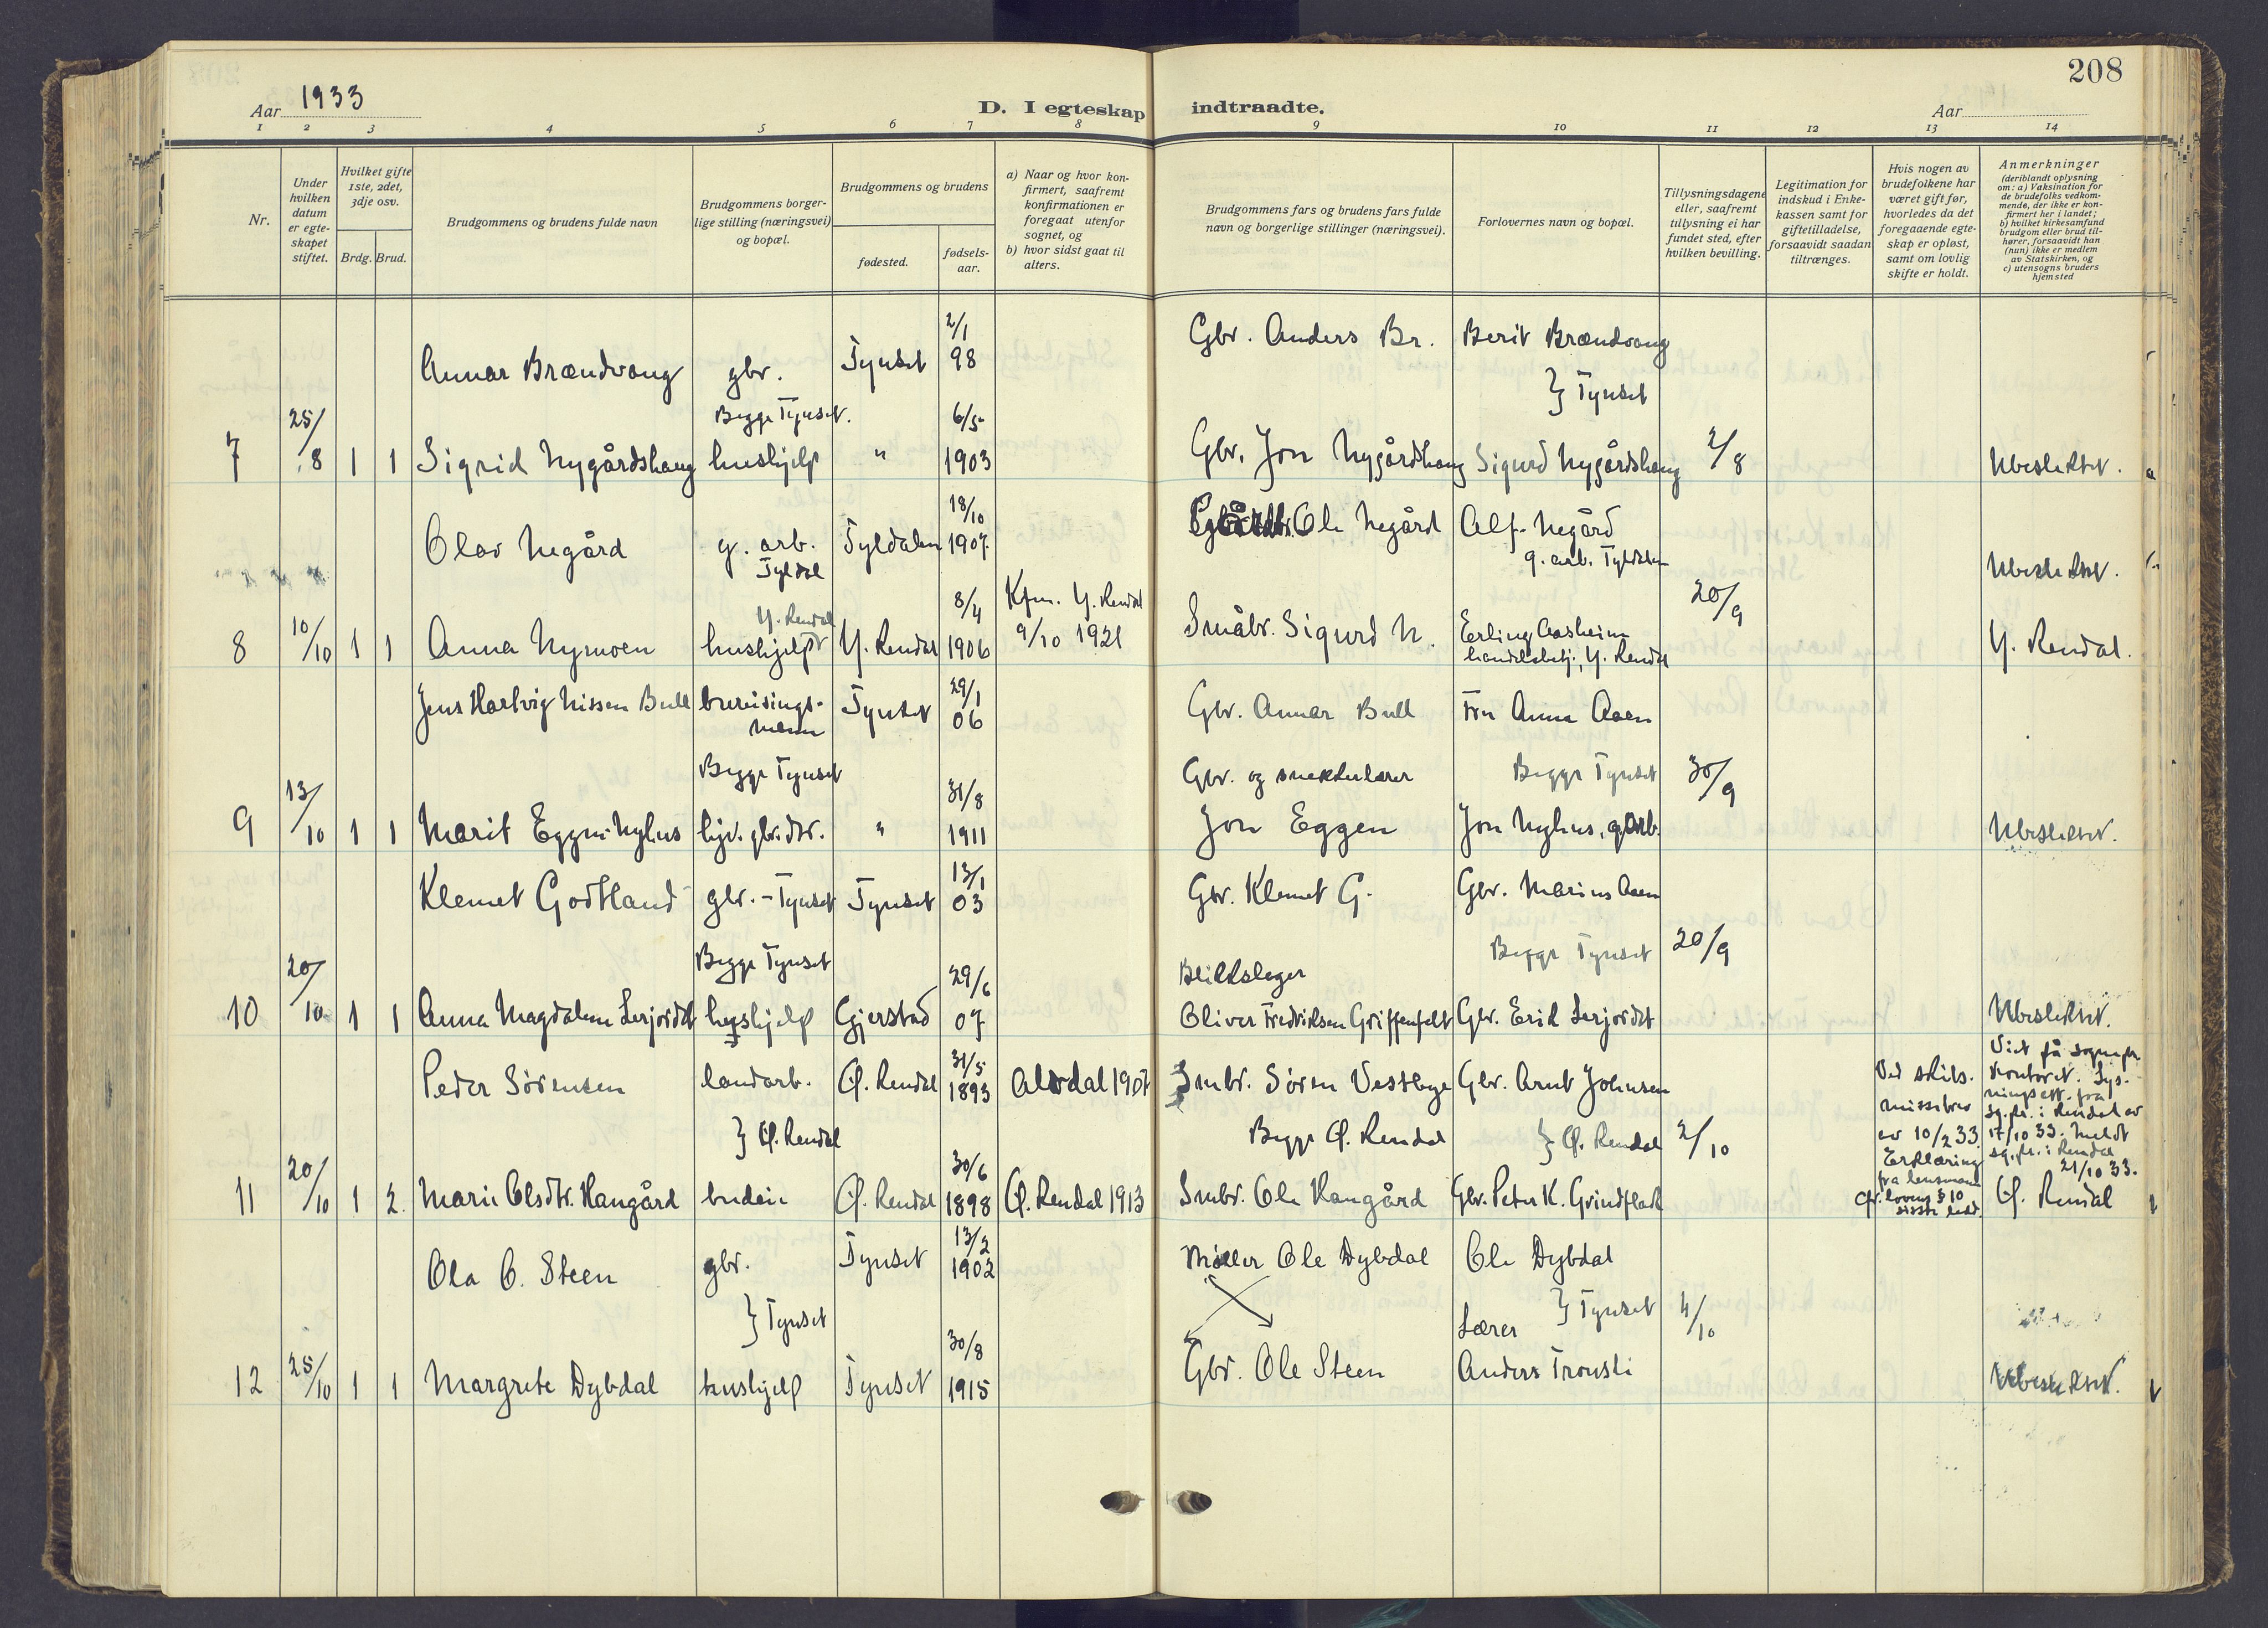 208
Aar 1933
D. I egteskap indtraadte.
Aar
1 2 3 4 5 6 7 8 9 10 11 12 13 14
Nr.
Under hvilken datum er egte-skapet stiftet.
Hvilket gifte 1ste, 2det, 3dje osv.
Brdg. Brud.
Brudgommens og brudens fulde navn
Brudgommens borger-lige stilling (næringsvei) og bopæl.
Brudgommens og brudens
fødested.
fødsels-aar.
a) Naar og hvor kon-firmert, saafremt konfirmationen er foregaat utenfor sognet, og
b) hvor sidst gaat til alters.
Brudgommens fars og brudens fars fulde navn og borgerlige stillinger (næringsvei).
Forlovernes navn og bopæl.
Tillysningsdagene eller, saafremt tillysning ei har fundet sted, efter hvilken bevilling.
Legitimation for indskud i Enke-kassen samt for giftetilladelse, forsaavidt saadan tiltrænges.
Hvis nogen av brudefolkene har været gift før, hvorledes da det foregaaende egte-skap er opløst, samt om lovlig skifte er holdt.
Anmerkninger (deriblandt oplysning om: a) Vaksination for de brudefolks vedkom-mende, der ikke er kon-firmert her i landet; b) hvilket kirkesamfund brudgom eller brud til-hører, forsaavidt han (hun) ikke er medlem av Statskirken, og c) utensogns bruders hjemsted
2/1
Annar Brændvang gbr. Tynset 98 Gbr. Anders Br. Berit Brændvang
} Tynset
Begge Tynset.
7 25/8 1 1 Sigrid Nygårdshaug hushjelp " 6/5 1903 Gbr. Jon Nygårdshaug Sigurd Nygårdshaug 2/8 Ubeslektet.
18/10
Olav Negård g. arb. Tyldalen 1907 Ole Negård Alf Negård
Tyldal g. arb. Tyldalen Ubeslektet.
Y. Rendal 8/4 Kfm. Y. Rendal 20/9
8 10/10 1 1 Anna Nymoen hushjelp Y. Rendal 1906 9/10 1921 Småbr. Sigurd N. Erling Aasheim Y. Rendal.
handelsbetj., Y. Rendal
Jens Hartvig Nissen Bull bureisings-mann Tynset 29/1 06 Gbr. Annar Bull Fru Anna Aaen
Begge Tynset Gbr. og snekkerlærer Begge Tynset 30/9
9 13/10 1 1 Marit Eggen-Nyhus hjv. gbr.dtr. " 31/8 1911 Jon Eggen Jon Nyhus, g.arb. Ubeslektet.
Klemet Godtland gbr. - Tynset Tynset 13/1 03 Gbr. Klemet G. Gbr. Marius Aaen
Begge Tynset Blikkslager Begge Tynset 20/9
10 20/10 1 1 Anna Magdalene Lerjordet hushjelp Gjerstad 29/6 07 Oliver Fredriksen Griffenfelt Gbr. Erik Lerjordet Ubeslektet.
Peder Sørensen landarb. Ø. Rendal 31/5 1893 Alvdal 1907 Smbr. Søren Vestbye Gbr. Arnt Johnsen
} Ø. Rendal Begge Ø. Rendal } Ø. Rendal 2/10
Ved skils-
missebrev
av 10/2 33.
Erklæring
fra lensmann
cfr. lovens § 10
siste ledd.
Viet på sognepr.
kontoret. Lys-
ningsatt. fra
sg.pr. i Rendal av
17/10 33. Meldt
sg.pr. i Rendal
21/10 33.
11 20/10 1 2. Marie Olsdtr. Haugård budeie Ø. Rendal 30/6 1898 Ø. Rendal 1913 Smbr. Ole Haugård Gbr. Peter K. Grindflæk Ø. Rendal
Ola O. Steen gbr. Tynset 13/2 1902 Møller Ole Dybdal Ole Dybdal
} Tynset } Tynset 4/10
Lærer
12 25/10 1 1 Margrete Dybdal hushjelp Tynset 30/8 1915 Gbr. Ole Steen Anders Tronsli Ubeslektet.